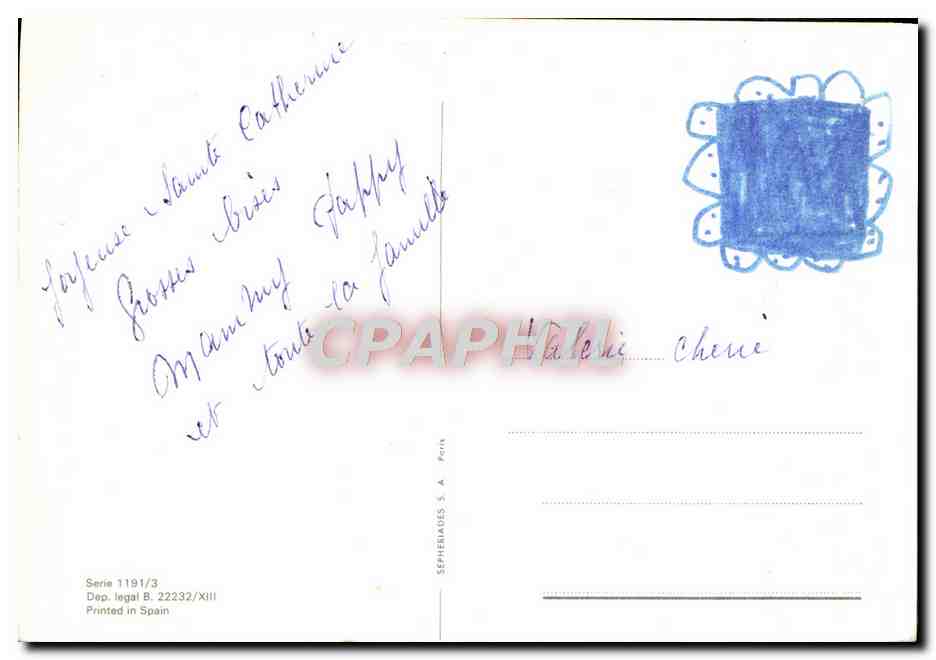 Joyeuse Sainte Catherine
Grosses bises
Mammy Pappy
et toute la famille
Valerie cherie
CPAPHIL
SEPHERIADES S. A. Paris
Serie 1191/3
Dep. legal B. 22232/XIII
Printed in Spain